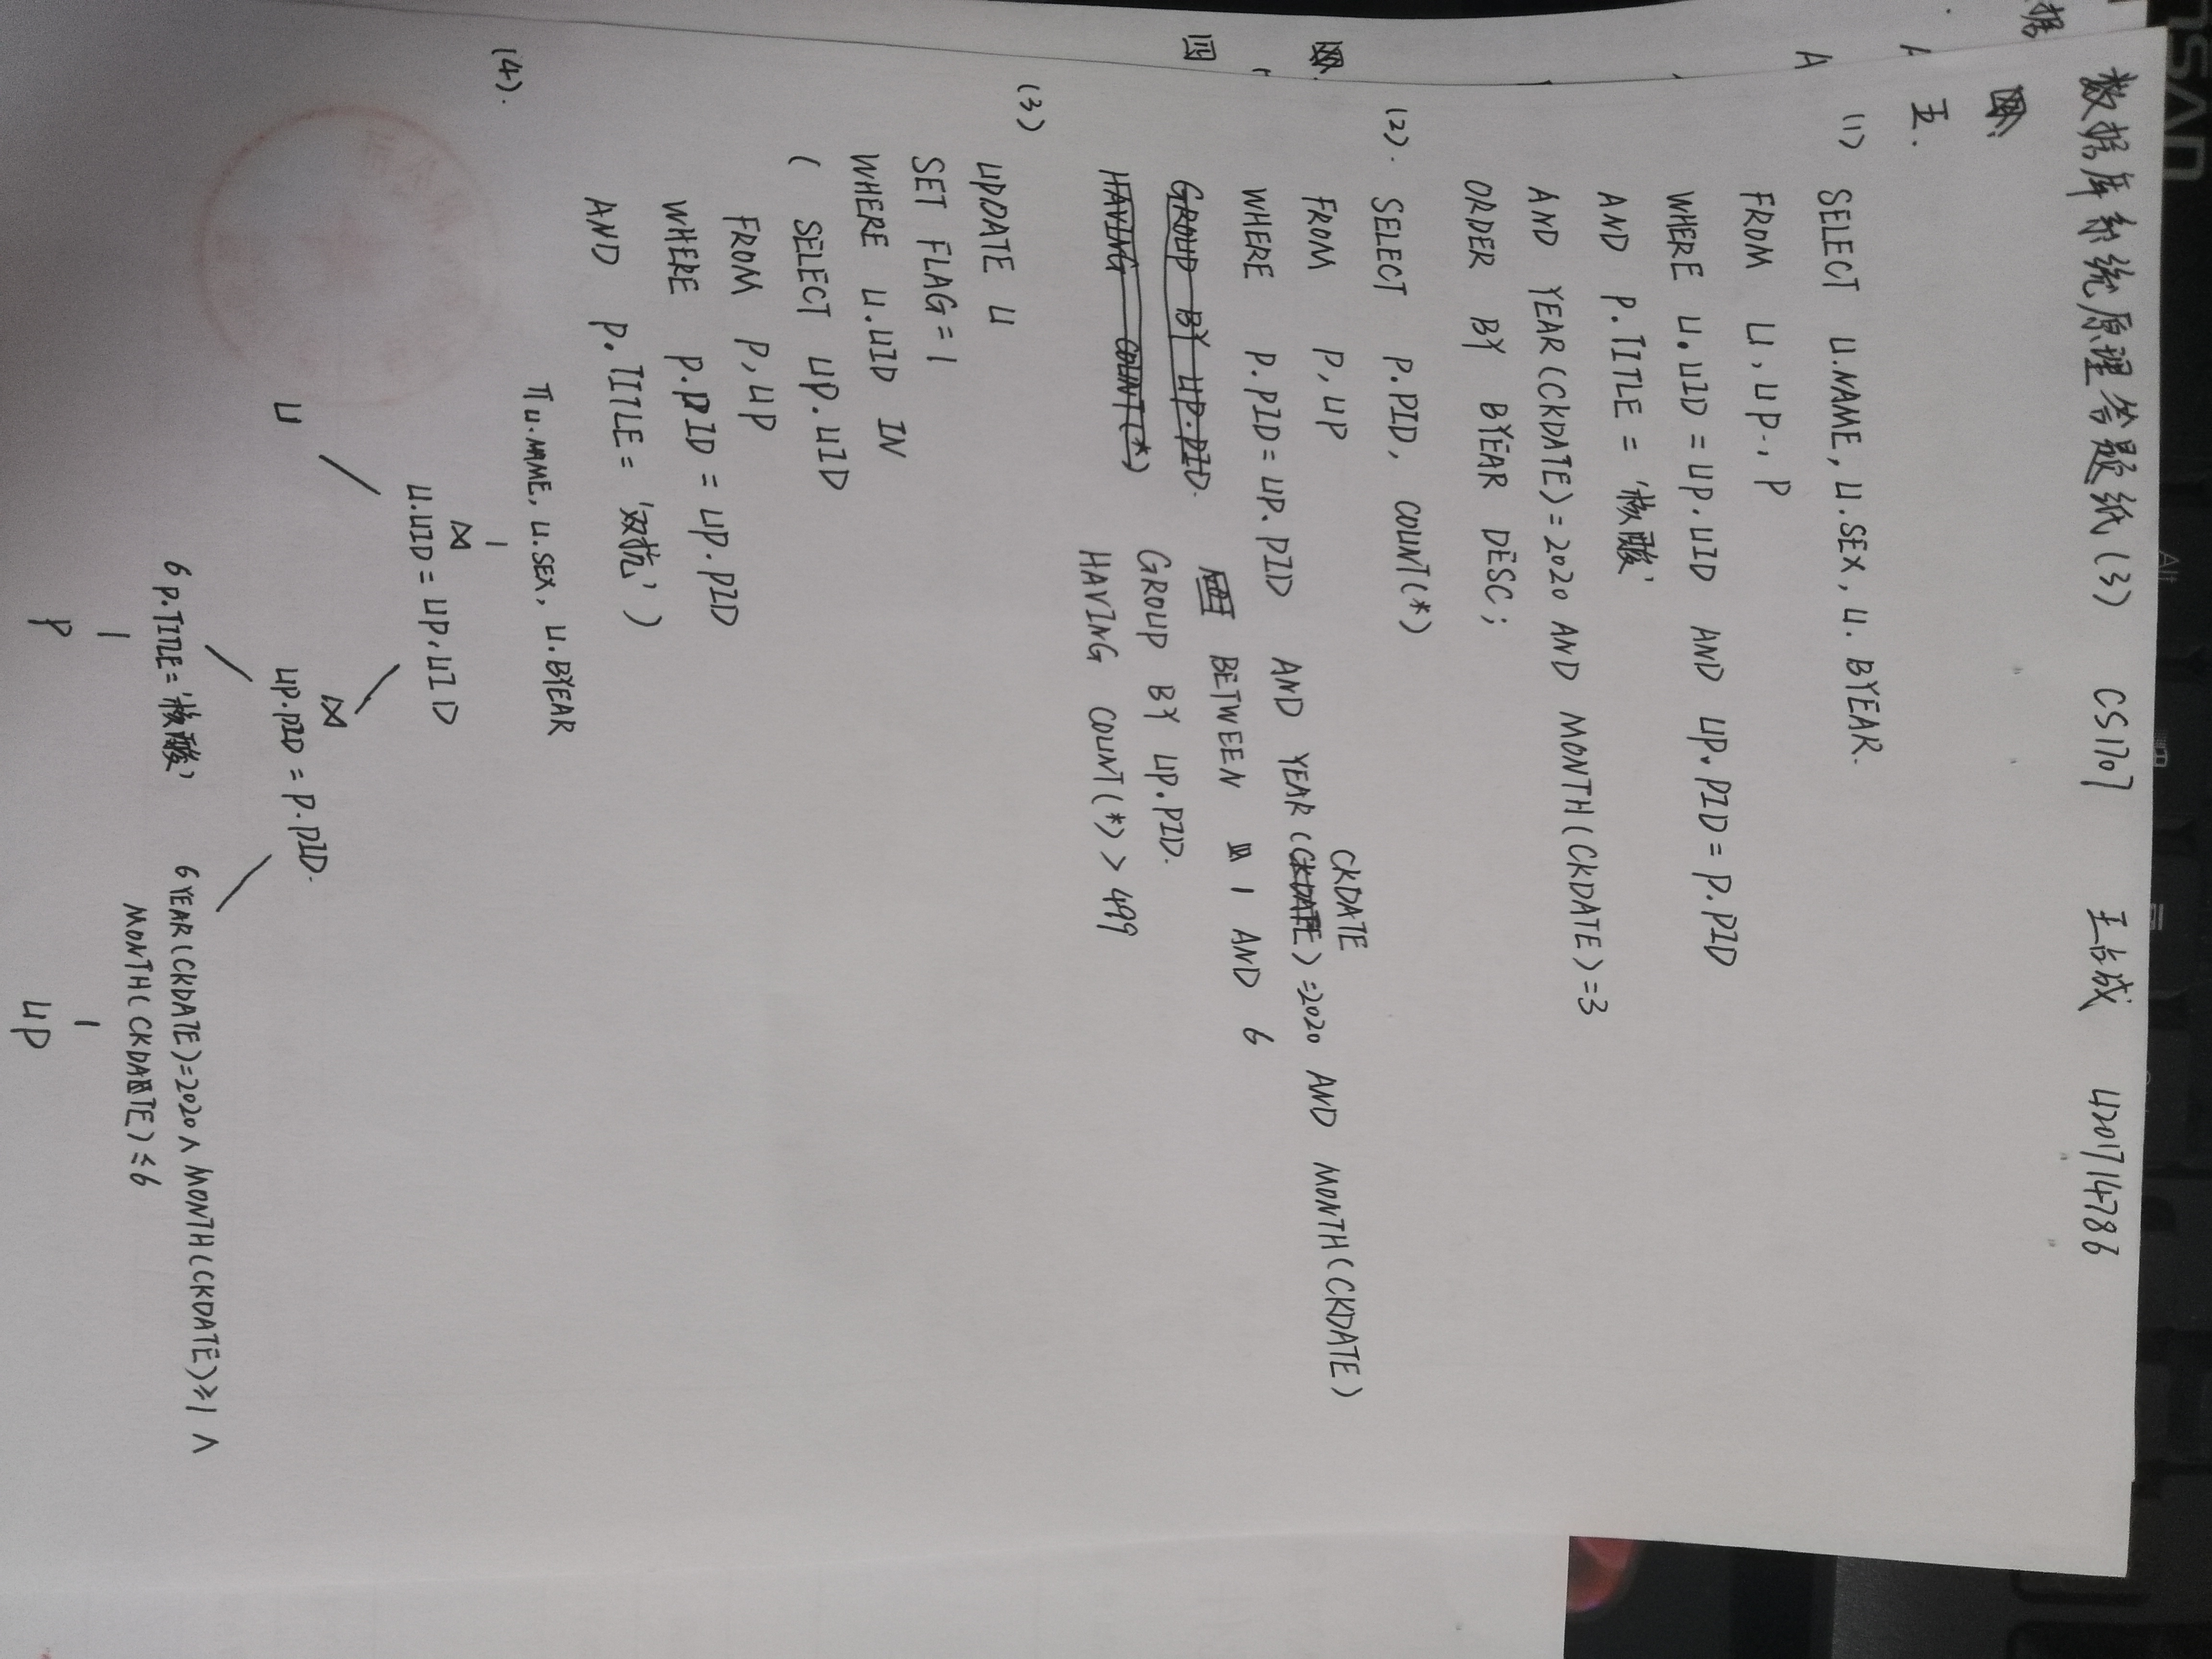 数据库系统原理答题纸(3) CS1707 王占成 U201714786
五.
(1) SELECT U.NAME, U.SEX, U.BYEAR.
FROM U, UP, P
WHERE U.UID = UP.UID AND UP.PID = P.PID
AND P.TITLE = '核酸'
AND YEAR(CKDATE)=2020 AND MONTH(CKDATE)=3
ORDER BY BYEAR DESC;
(2). SELECT P.PID, COUNT(*)
FROM P, UP
WHERE P.PID = UP.PID AND YEAR(CKDATE)=2020 AND MONTH(CKDATE)
BETWEEN 1 AND 6
GROUP BY UP.PID.
HAVING COUNT(*) > 499
(3)
UPDATE U
SET FLAG=1
WHERE U.UID IN
( SELECT UP.UID
FROM P, UP
WHERE P.PID = UP.PID
AND P.TITLE = '双抗' )
(4).
π U.NAME, U.SEX, U.BYEAR
⋈
U.UID = UP.UID
U
⋈
UP.PID = P.PID.
6 P.TITLE='核酸'
P
6 YEAR(CKDATE)=2020 ∧ MONTH(CKDATE)≥1 ∧
MONTH(CKDATE)≤6
UP
据
A
四